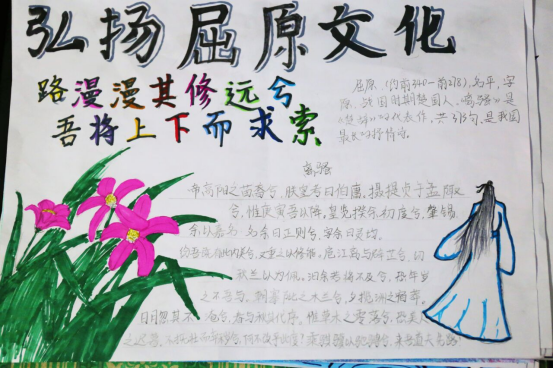 弘扬屈原文化
路漫漫其修远兮
吾将上下而求索
屈原(约前340—前278),名平,字
原,战国时期楚国人,《离骚》是
《楚辞》的代表作,共373句,是我国
最长的抒情诗。
离骚
帝高阳之苗裔兮,朕皇考曰伯庸。摄提贞于孟陬
兮,惟庚寅吾以降,皇览揆余初度兮,肇锡
余以嘉名 名余曰正则兮,字余曰灵均
纷吾既有此内美兮,又重之以修能。扈江离与辟芷兮,纫
秋兰以为佩。汩余若将不及兮,恐年岁
之不吾与。朝搴阰之木兰兮,夕揽洲之宿莽。
日月忽其不淹兮,春与秋其代序。惟草木之零落兮,恐美人
之迟暮。不抚壮而弃秽兮,何不改乎此度?乘骐骥以驰骋兮,来吾道夫先路!